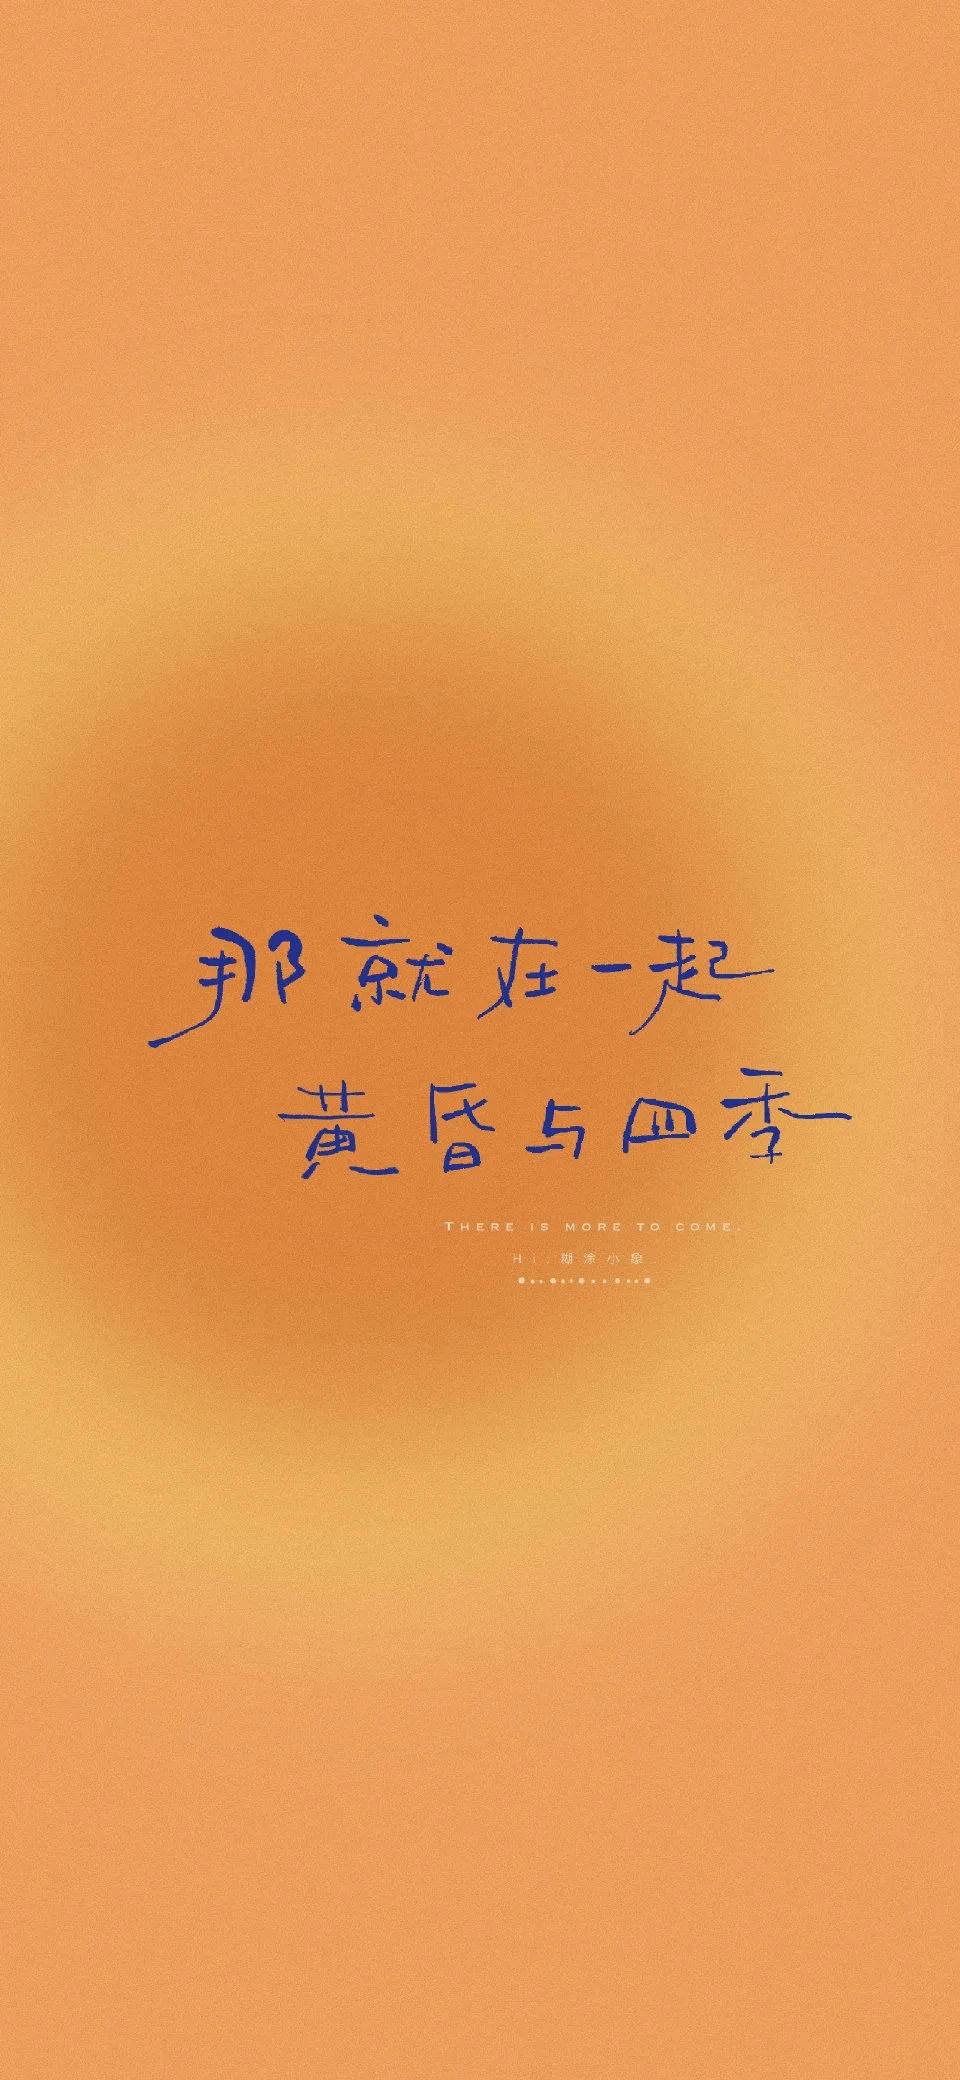 那就在一起
黄昏与四季
THERE IS MORE TO COME.
Hi,糊涂小象